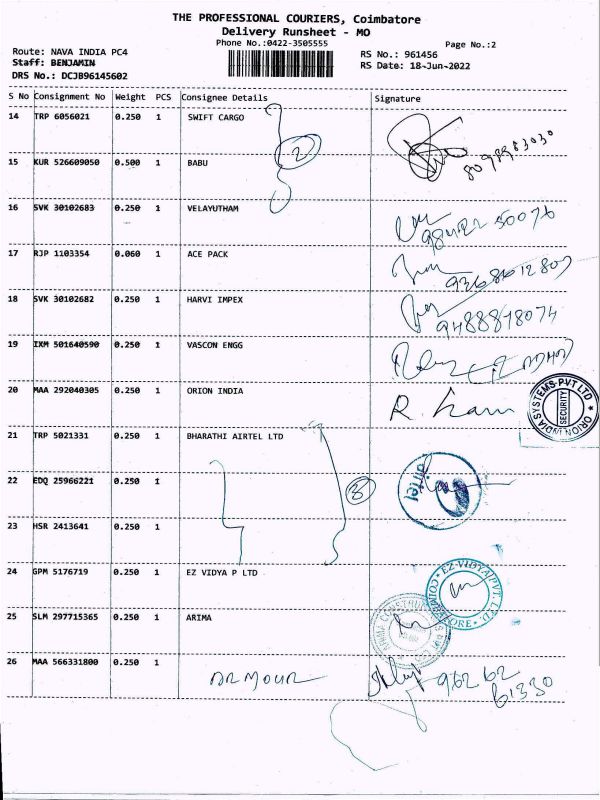 THE PROFESSIONAL COURIERS, Coimbatore
Delivery Runsheet - MO
Phone No.:0422-3505555
Page No.:2
Route: NAVA INDIA PC4
Staff: BENJAMIN
DRS No.: DCJB96145602
RS No.: 961456
RS Date: 18-Jun-2022
S No Consignment No Weight PCS Consignee Details Signature
14 TRP 6056021 0.250 1 SWIFT CARGO
2
8098983030
15 KUR 526609050 0.500 1 BABU
16 SVK 30102683 0.250 1 VELAYUTHAM
17 RJP 1103354 0.060 1 ACE PACK
18 SVK 30102682 0.250 1 HARVI IMPEX
9488878074
19 IXM 501640590 0.250 1 VASCON ENGG
20 MAA 292040305 0.250 1 ORION INDIA
ORION INDIA SYSTEMS PVT LTD
SECURITY
21 TRP 5021331 0.250 1 BHARATHI AIRTEL LTD
22 EDQ 25966221 0.250 1
3
airtel
23 HSR 2413641 0.250 1
24 GPM 5176719 0.250 1 EZ VIDYA P LTD
EZ VIDYA PVT. LTD. COIMBATORE
25 SLM 297715365 0.250 1 ARIMA
26 MAA 566331800 0.250 1 ARMOUR
96262
61330